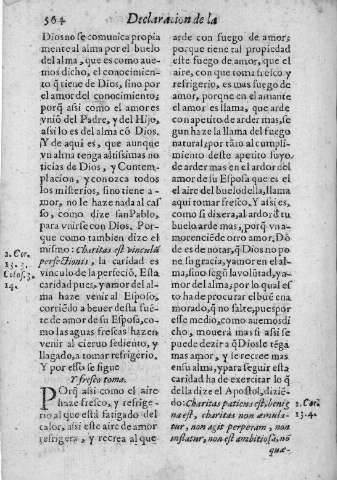 564
Declaracion de la
Dios no se comunica propia
mente al alma por el buelo
del alma, que es como aue-
mos dicho, el conocimien-
to q̃ tiene de Dios, sino por
el amor del conocimiento;
porq̃ assi como el amor es
vniõ del Padre, y del Hijo,
assi lo es del alma cõ Dios.
Y de aqui es, que aunque
vn alma tenga altissimas no
ticias de Dios, y Contem-
placion, y conozca todos
los misterios, sino tiene a-
mor, no le haze nada al caf
so, como dize san Pablo,
para vnirse con Dios. Por-
que como tambien dize el
mismo: Charitas est vinculũ
perfectionis, la caridad es
vinculo de la perfeciõ. Esta
caridad pues, y amor del al-
ma haze venir al Esposo,
corriẽdo a beuer desta fuẽ-
te de amor de su Esposa, co-
mo las aguas frescas hazen
venir al cieruo sediento, y
llagado, a tomar refrigerio.
Y por esso se sigue
Y fresco toma.
POrq̃ assi como el aire
haze fresco, y refrige-
rio al que está fatigado del
calor, assi este aire de amor
refrigera, y recrea al que
2. Cor.
13. 3.
Colos. 3.
14.
arde con fuego de amor;
porque tiene tal propiedad
este fuego de amor, que el
aire, con que toma fresco y
refrigerio, es mas fuego de
amor, porque en el amante
el amor es llama, que arde
con apetito de arder mas, se
gun haze la llama del fuego
natural; por tãto al cumpli-
miento deste apetito suyo.
de arder mas en el ardor del
amor de su Esposa que es
el aire del buelo della, llama
aqui tomar fresco. Y assi es,
como si dixera, al ardor d̃ tu
buelo arde mas, porq̃ vn a-
mor enciẽde otro amor; Dõ
de es de notar, q̃ Dios no po-
ne su gracia, y amor en el al-
ma, sino segũ la volũtad, y a-
mor del alma; por lo qual es
to ha de procurar el buẽ ena
morado, q̃ no falte, pues por
esse medio, como auemos di-
cho, mouerá mas si assi se
puede dezir a q̃ Dios le tẽga
mas amor, y se recree mas
en su alma, y para seguir esta
caridad ha de exercitar lo q̃
della dize el Apostol, diziẽ-
do: Charitas patiens est, benig
na est, charitas non æmula-
tur, non agit perperam, non
inflatur, non est ambitiosa, nõ
quæ-
1. Cor.
13. 4.